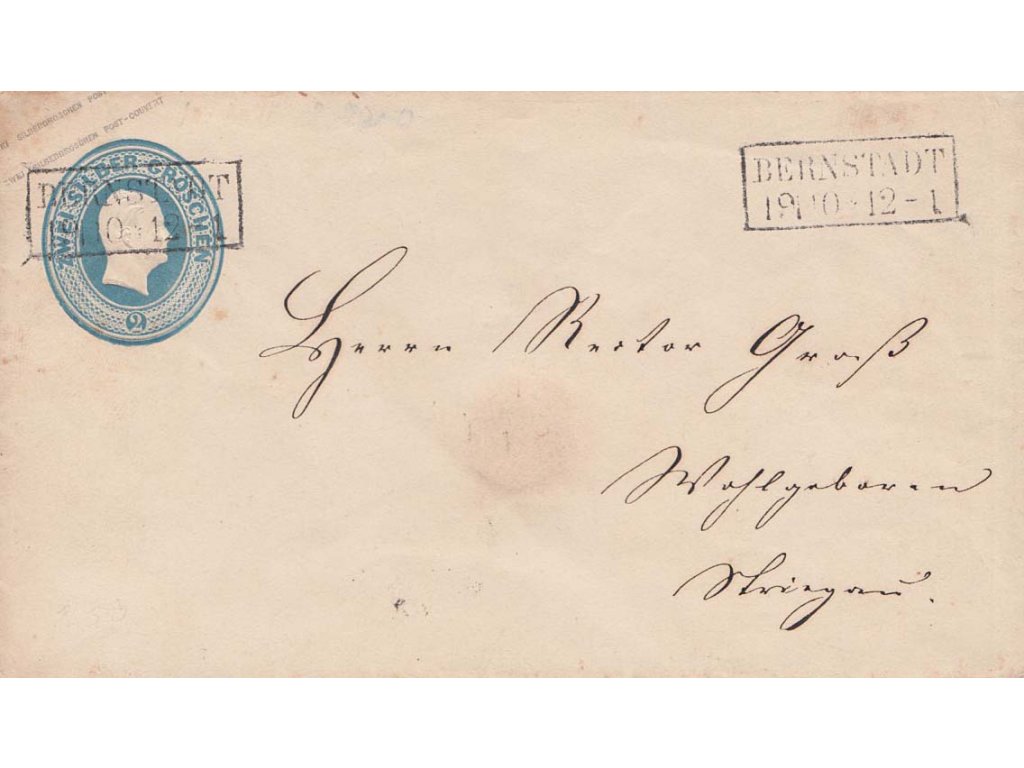 ZWEI SILBERGROSCHEN POST-COUVERT
ZWEI SILBER GROSCHEN
2
BERNSTADT
12 - 1
BERNSTADT
19 10 * 12 - 1
Herrn Rector Groß
Wohlgeboren
Striegau.